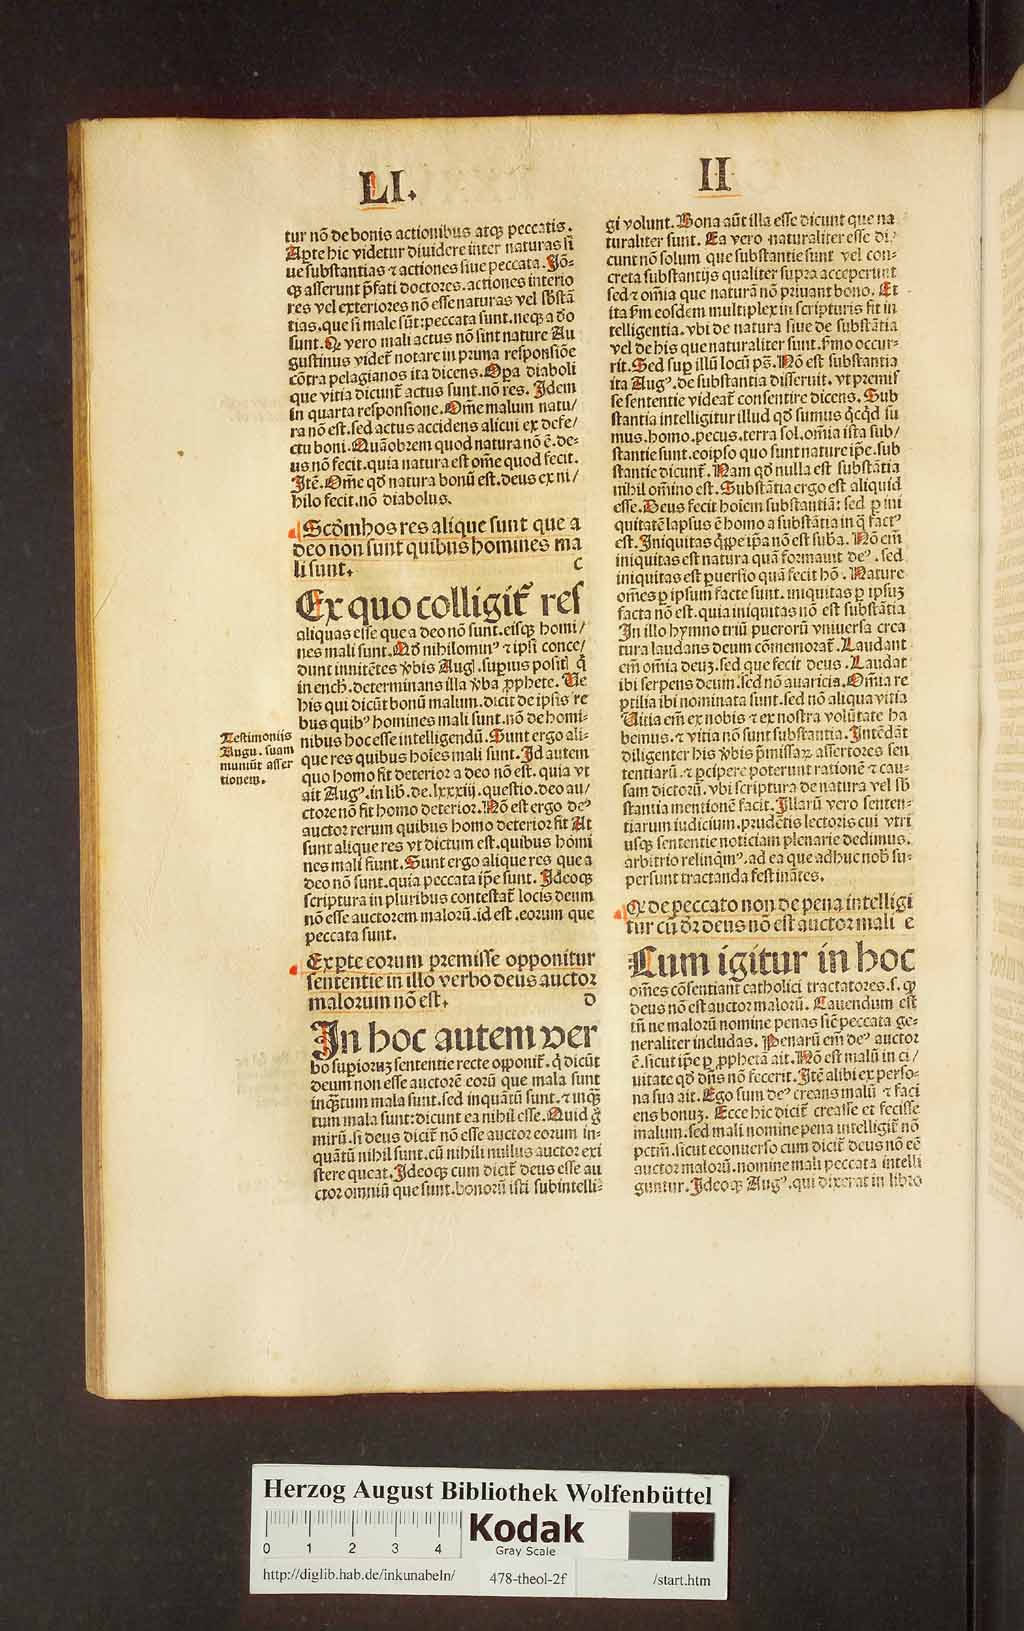 LI.
II
tur nō de bonis actionibus atqꝫ peccatis.
Apte hic videtur diuidere inter naturas si
ue substantias ⁊ actiones siue peccata. Iō⸗
qꝫ asserunt p̄fati doctores. actiones interio
res vel exteriores nō esse naturas vel sb̄stā
tias. que si male sūt: peccata sunt. neqꝫ a dō
sunt. Qꝛ vero mali actus nō sint nature Au
gustinus videt̄ notare in prima responsiōe
cōtra pelagianos ita dicens. Opa diaboli
que vitia dicunt̄ actus sunt. nō res. Idem
in quarta responsione. Om̄e malum natu/
ra nō est. sed actus accidens alicui ex defe/
ctu boni. Quāobrem quod natura nō ē. de⸗
us nō fecit. quia natura est om̄e quod fecit.
Itē. Om̄e qd̄ natura bonū est. deus ex ni/
hilo fecit. nō diabolus.
Scd̄m hos res alique sunt que a
deo non sunt quibus homines ma
li sunt. C
Ex quo colligit̄ res
aliquas esse que a deo nō sunt. eisqꝫ homi/
nes mali sunt. Nō nihilominꝰ ⁊ ipsi conce/
dunt innitētes v̄bis Augꝰ. supius positꝭ q̄
in ench̄. determinans illa v̄ba ꝓphete. Ve
his qui dicūt bonū malum. dicit de ipsis re
bus quibꝰ homines mali sunt. nō de homi⸗
nibus hoc esse intelligendū. Sunt ergo ali⸗
que res quibus hoīes mali sunt. Id autem
quo homo fit deterior a deo nō est. quia vt
ait Augꝰ. in lib. de. lxxxiij. questio. deo au/
ctore nō fit homo deterior. Nō est ergo deꝰ
auctor rerum quibus homo deterior fit At
sunt alique res vt dictum est. quibus homi
nes mali fiunt. Sunt ergo alique res que a
deo nō sunt. quia peccata ip̄e sunt. Ideoqꝫ
scriptura in pluribus contestat̄ locis deum
nō esse auctorem malorū. id est. eorum que
peccata sunt.
Testimoniis
Augu. suam
muniūt asser
tionem.
Ex pte eorum premisse opponitur
sententie in illo verbo deus auctor
malorum nō est. D
In hoc autem ver
bo supioruꝫ sententie recte opponit̄. q̄ dicūt
deum non esse auctorē eorū que mala sunt
inqꝫtum mala sunt. sed inquātū sunt. ⁊ inqꝫ
tum mala sunt: dicunt ea nihil esse. Quid ḡ
mirū. si deus dicit̄ nō esse auctor eorum in⸗
quātū nihil sunt. cū nihili nullus auctor exi
stere queat. Ideoqꝫ cum dicit̄ deus esse au
ctor omniū que sunt. bonorū isti subintelli⸗
gi volunt. Bona aūt illa esse dicunt que na
turaliter sunt. Ea vero naturaliter esse di⸗
cunt nō solum que substantie sunt vel con⸗
creta substantijs qualiter supra acceperunt
sed ⁊ om̄ia que naturā nō priuant bono. Et
ita s̄m eosdem multiplex in scripturis fit in
telligentia. vbi de natura siue de substātia
vel de his que naturaliter sunt. s̄mo occur⸗
rit. Sed sup illū locū ps̄. Nō est substantia
ita Augꝰ. de substantia disseruit. vt premis
se sententie videat̄ consentire dicens. Sub
stantia intelligitur illud qd̄ sumus q̄cqd̄ su
mus. homo. pecus. terra sol. om̄ia ista sub/
stantie sunt. eo ipso quo sunt nature ip̄e. sub
stantie dicunt̄. Nam qd̄ nulla est substātia
nihil om̄ino est. Substātia ergo est aliquid
esse. Deus fecit hoīem substantiā: sed ꝑ ini
quitatē lapsus ē homo a substātia in q̄ factꝰ
est. Iniquitas q̄ppe ip̄a nō est suba. Nō em̄
iniquitas est natura quā formauit deꝰ. sed
iniquitas est ꝑuersio quā fecit hō. Nature
om̄es ꝑ ipsum facte sunt. iniquitas ꝑ ipsuꝫ
facta nō est. quia iniquitas nō est substātia
In illo hymno triū puerorū vniuersa crea
tura laudans deum cōmemorat̄. Laudant
em̄ om̄ia deuꝫ. sed que fecit deus. Laudat
ibi serpens deum. sed nō auaricia. Om̄ia re
ptilia ibi nominata sunt. sed nō aliqua vitia
Vitia em̄ ex nobis ⁊ ex nostra volūtate ha
bemus. ⁊ vitia nō sunt substantia. Intēdāt
diligenter his v̄bis p̄missaꝝ assertores sen
tentiarū. ⁊ ꝑcipere poterunt rationē ⁊ cau⸗
sam dictorū. vbi scriptura de natura vel sb̄
stantia mentionē facit. Illarū vero senten⸗
tiarum iudicium. prudētis lectoris cui vtri
usqꝫ sententie noticiam plenarie dedimus.
arbitrio relinq̄mꝰ. ad ea que adhuc nob̄ su⸗
persunt tractanda festināntes.
Qꝛ de peccato non de pena intelligi
tur cū dr̄ deus nō est auctor mali e
Cum igitur in hoc
om̄es cōsentiant catholici tractatores. s. qꝫ
deus nō est auctor malorū. Cauendum est
tn̄ ne malorū nomine penas sic̄ peccata ge⸗
neraliter includas. Penarū em̄ deꝰ auctor
ē. sicut ip̄e ꝑ ꝓphetā ait. Nō est malū in ci/
uitate qd̄ dn̄s nō fecerit. Itē alibi ex perso⸗
na sua ait. Ego sum deꝰ creans malū ⁊ faci
ens bonuꝫ. Ecce hic dicit̄ creasse et fecisse
malum. sed mali nomine pena intelligit̄ nō
pctm̄. sicut econuerso cum dicit̄ deus nō eē
auctor malorū. nomine mali peccata intelli
guntur. Ideoqꝫ Augꝰ. qui dixerat in libro
Herzog August Bibliothek Wolfenbüttel
0 1 2 3 4
Kodak
Gray Scale
http://diglib.hab.de/inkunabeln/ 478-theol-2f /start.htm